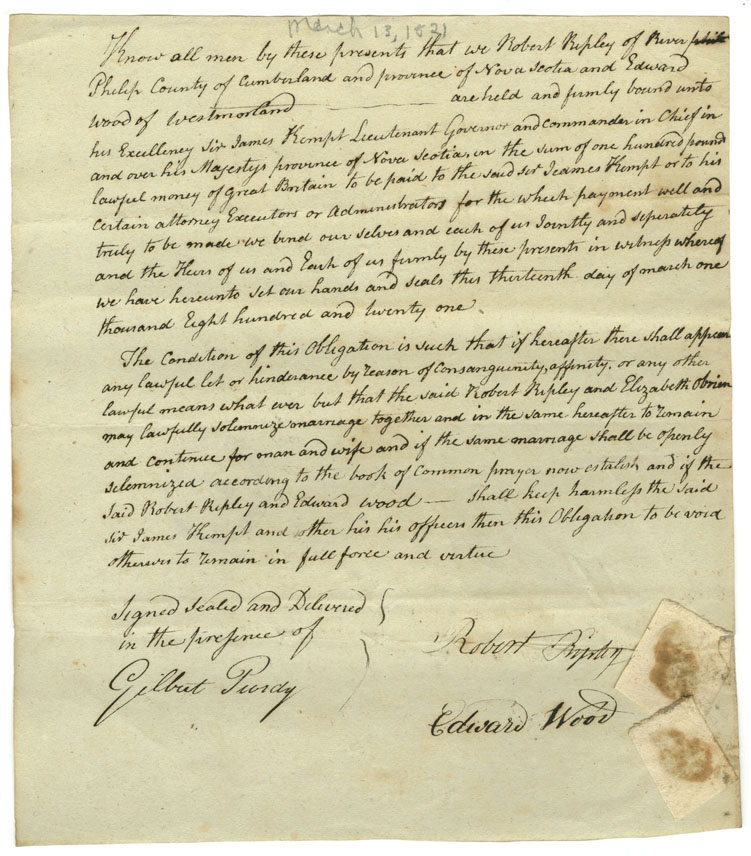 March 13, 1821
Know all men by these presents that we Robert Ripley of River
Philip County of Cumberland and province of Nova Scotia and Edward
wood of Westmorland ——— are held and firmly bound unto
his Excellency Sir James Kempt Lieutenant Governor and Commander in Chief in
and over his Majestys province of Nova Scotia, in the sum of one hundred pound
lawful money of Great Britain to be paid to the said sir Jeames Kempt or to his
Certain attorney Executors or Administrators for the which payment well and
truly to be made we bind our selves and each of us Jointly and seperately
and the Heirs of us and Each of us firmly by these presents in witness whereof
we have hereunto set our hands and seals this thirteenth day of march one
thousand Eight hundred and twenty one
The Condition of this Obligation is such that if hereafter there shall appear
any lawful let or hinderance by reason of Consanguinity, affinity, or any other
lawful means what ever but that the said Robert Ripley and Elizabeth Obrien
may lawfully solemnize marriage together and in the same hereafter to remain
and continue for man and wife and if the same marriage shall be openly
solemnized according to the book of Common prayer now establish and if the
said Robert Ripley and Edward wood — shall keep harmless the said
sir James Kempt and other his his officers then this Obligation to be void
otherwes to remain in full force and virtue
signed sealed and Delivered
in the presence of
Gilbert Purdy
Robert Ripley
Edward Wood